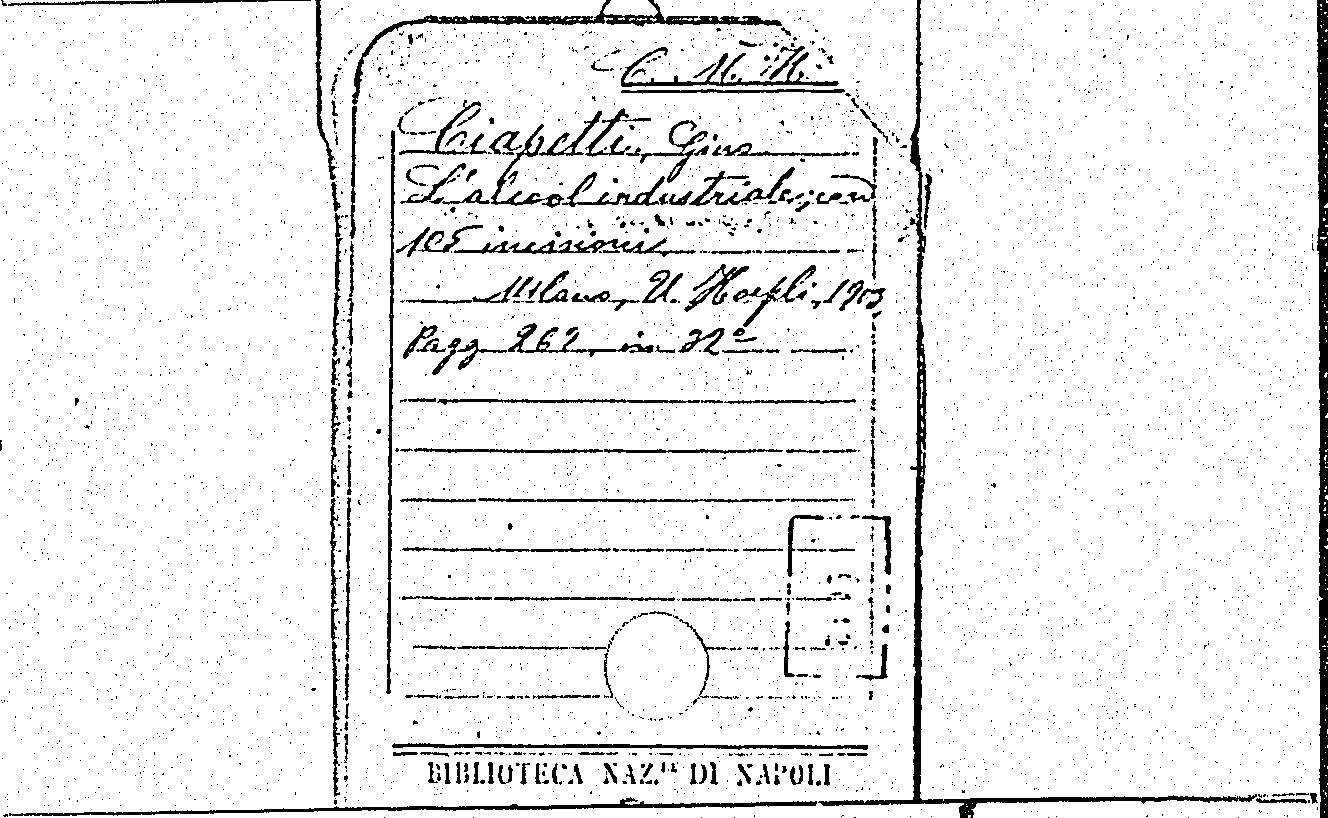 C. M. H.
Ciapetti, Gino
L'alcool industriale; con
105 incisioni
Milano, U. Hoepli, 1903
Pagg 262, in 32º
BIBLIOTECA NAZ.LE DI NAPOLI